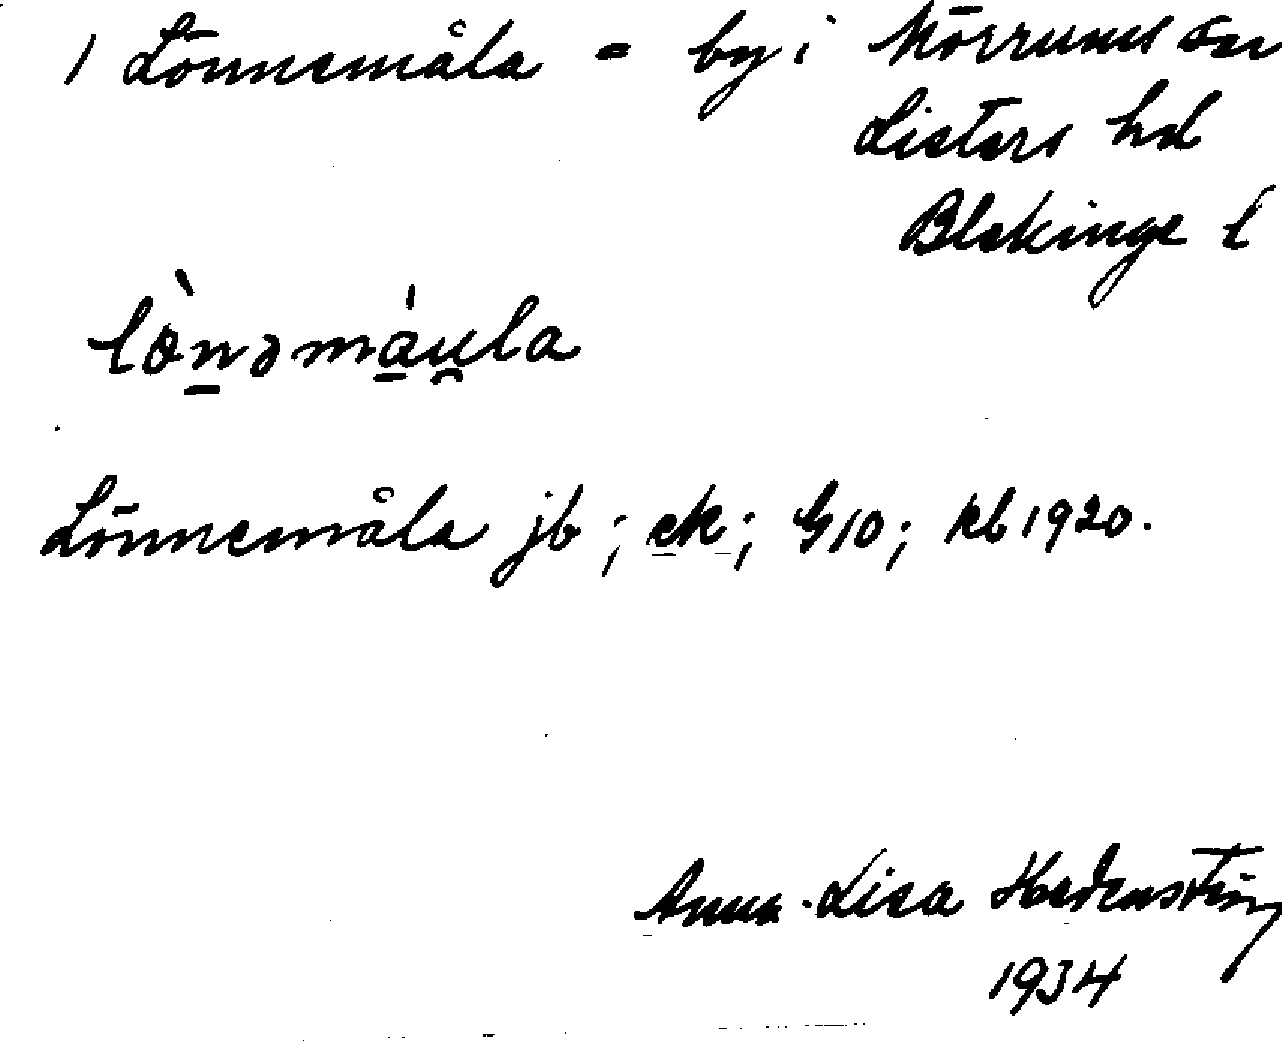 1 Lönnemåla = by i Mörrums sn
Listers hd
Blekinge l
lò̱nəmá̱u̯la
Lönnemåla jb; ek; G10; kb 1920.
Anna-Lisa Hedenström
1934